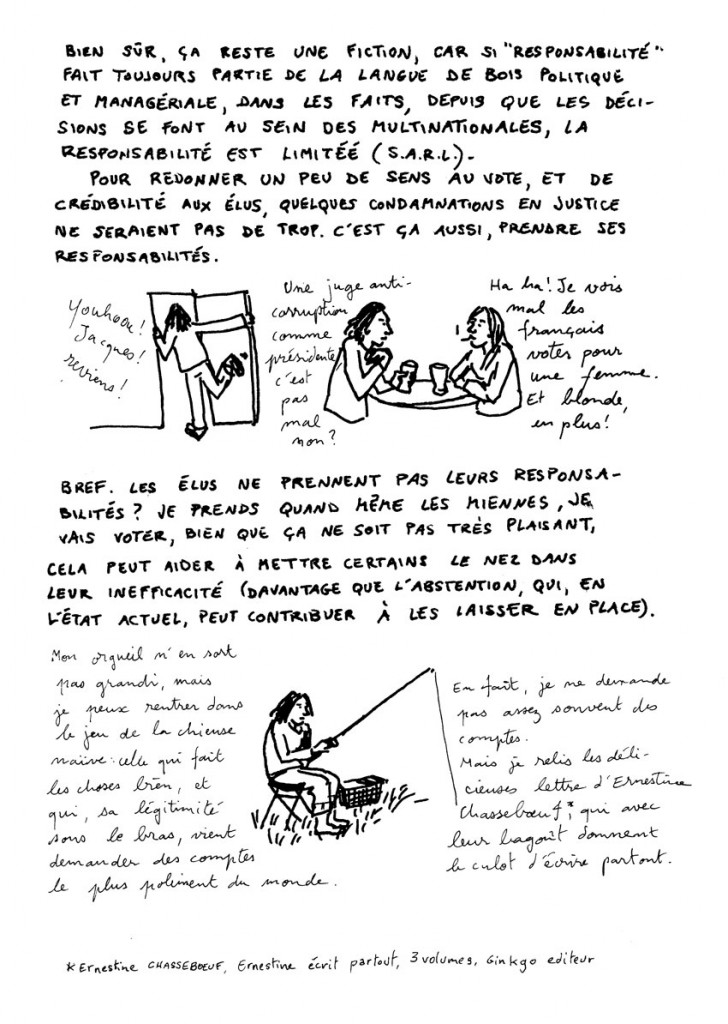 BIEN SÛR, ÇA RESTE UNE FICTION, CAR SI "RESPONSABILITÉ"
FAIT TOUJOURS PARTIE DE LA LANGUE DE BOIS POLITIQUE
ET MANAGÉRIALE, DANS LES FAITS, DEPUIS QUE LES DÉCI-
SIONS SE FONT AU SEIN DES MULTINATIONALES, LA
RESPONSABILITÉ EST LIMITÉÉ (S.A.R.L.).
POUR REDONNER UN PEU DE SENS AU VOTE, ET DE
CRÉDIBILITÉ AUX ÉLUS, QUELQUES CONDAMNATIONS EN JUSTICE
NE SERAIENT PAS DE TROP. C'EST ÇA AUSSI, PRENDRE SES
RESPONSABILITÉS.
Youhoou!
Jacques!
reviens!
Une juge anti-
corruption
comme
présidente,
c'est
pas
mal
non?
Ha ha! Je vois
mal les
français
voter pour
une femme.
Et blonde,
en plus!
BREF. LES ÉLUS NE PRENNENT PAS LEURS RESPONSA-
BILITÉS? JE PRENDS QUAND MÊME LES MIENNES, JE
VAIS VOTER, BIEN QUE ÇA NE SOIT PAS TRÈS PLAISANT,
CELA PEUT AIDER À METTRE CERTAINS LE NEZ DANS
LEUR INEFFICACITÉ (DAVANTAGE QUE L'ABSTENTION, QUI, EN
L'ÉTAT ACTUEL, PEUT CONTRIBUER À LES LAISSER EN PLACE).
Mon orgueil n'en sort
pas grandi, mais
je peux rentrer dans
le jeu de la chieuse
naïve: celle qui fait
les choses bien, et
qui, sa légitimité
sous le bras, vient
demander des comptes
le plus poliment du monde.
En fait, je ne demande
pas assez souvent des
comptes.
Mais je relis les déli-
cieuses lettre d'Ernestine
Chassebœuf*, qui avec
leur bagoût donnent
le culot d'écrire partout.
*Ernestine CHASSEBŒUF, Ernestine écrit partout, 3 volumes, Ginkgo editeur